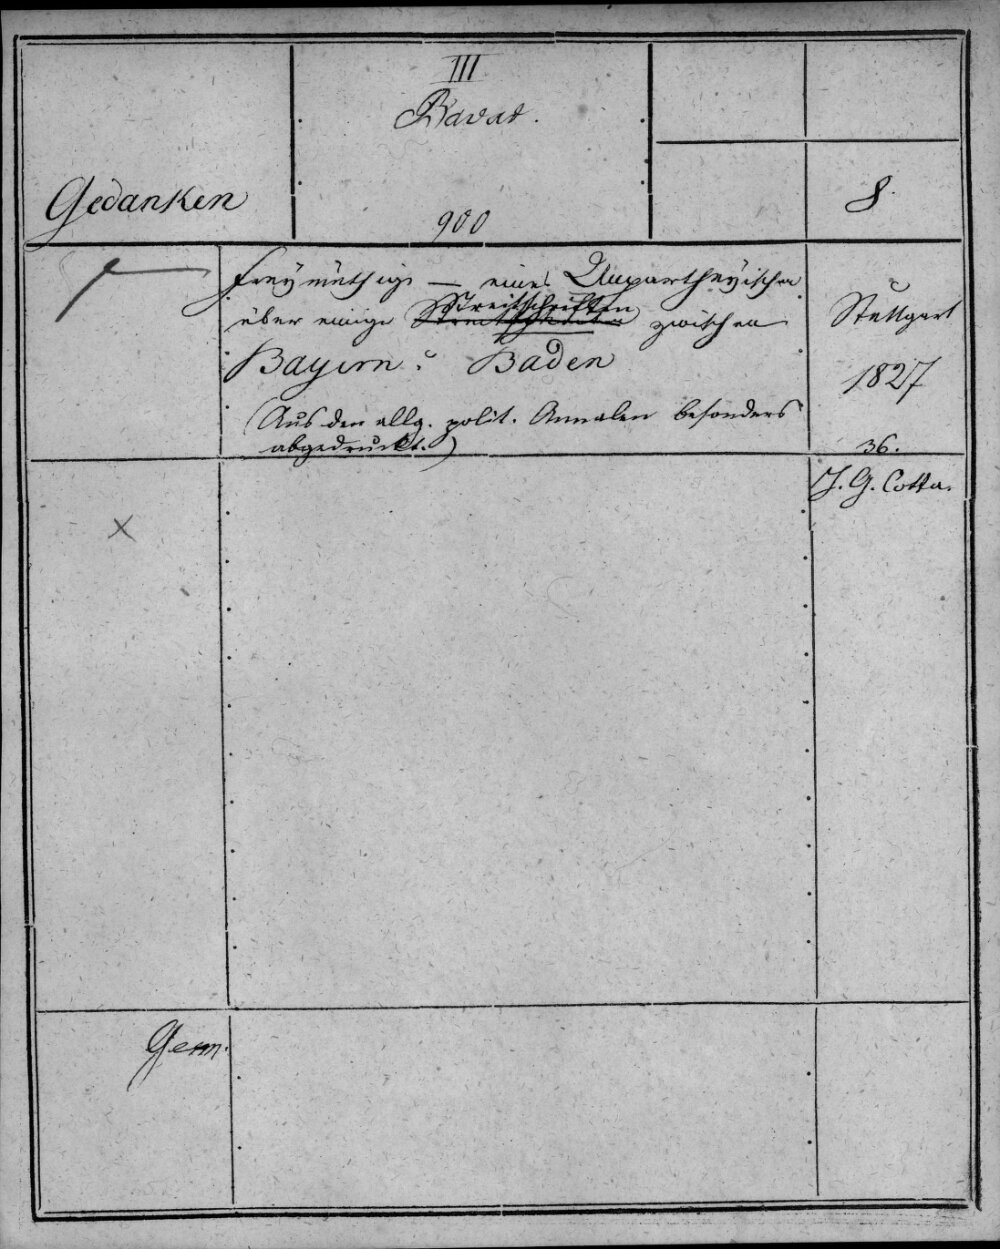 III
Bavar.
Gedanken
900
8
Freymüthige — eines Unpartheyischen
Streitschriften
über einige zwischen
Stuttgart
Bayern u. Baden
1827
(Aus den allg. polit. Annalen besonders
abgedruckt.)
36.
J. G. Cotta.
X
Germ.